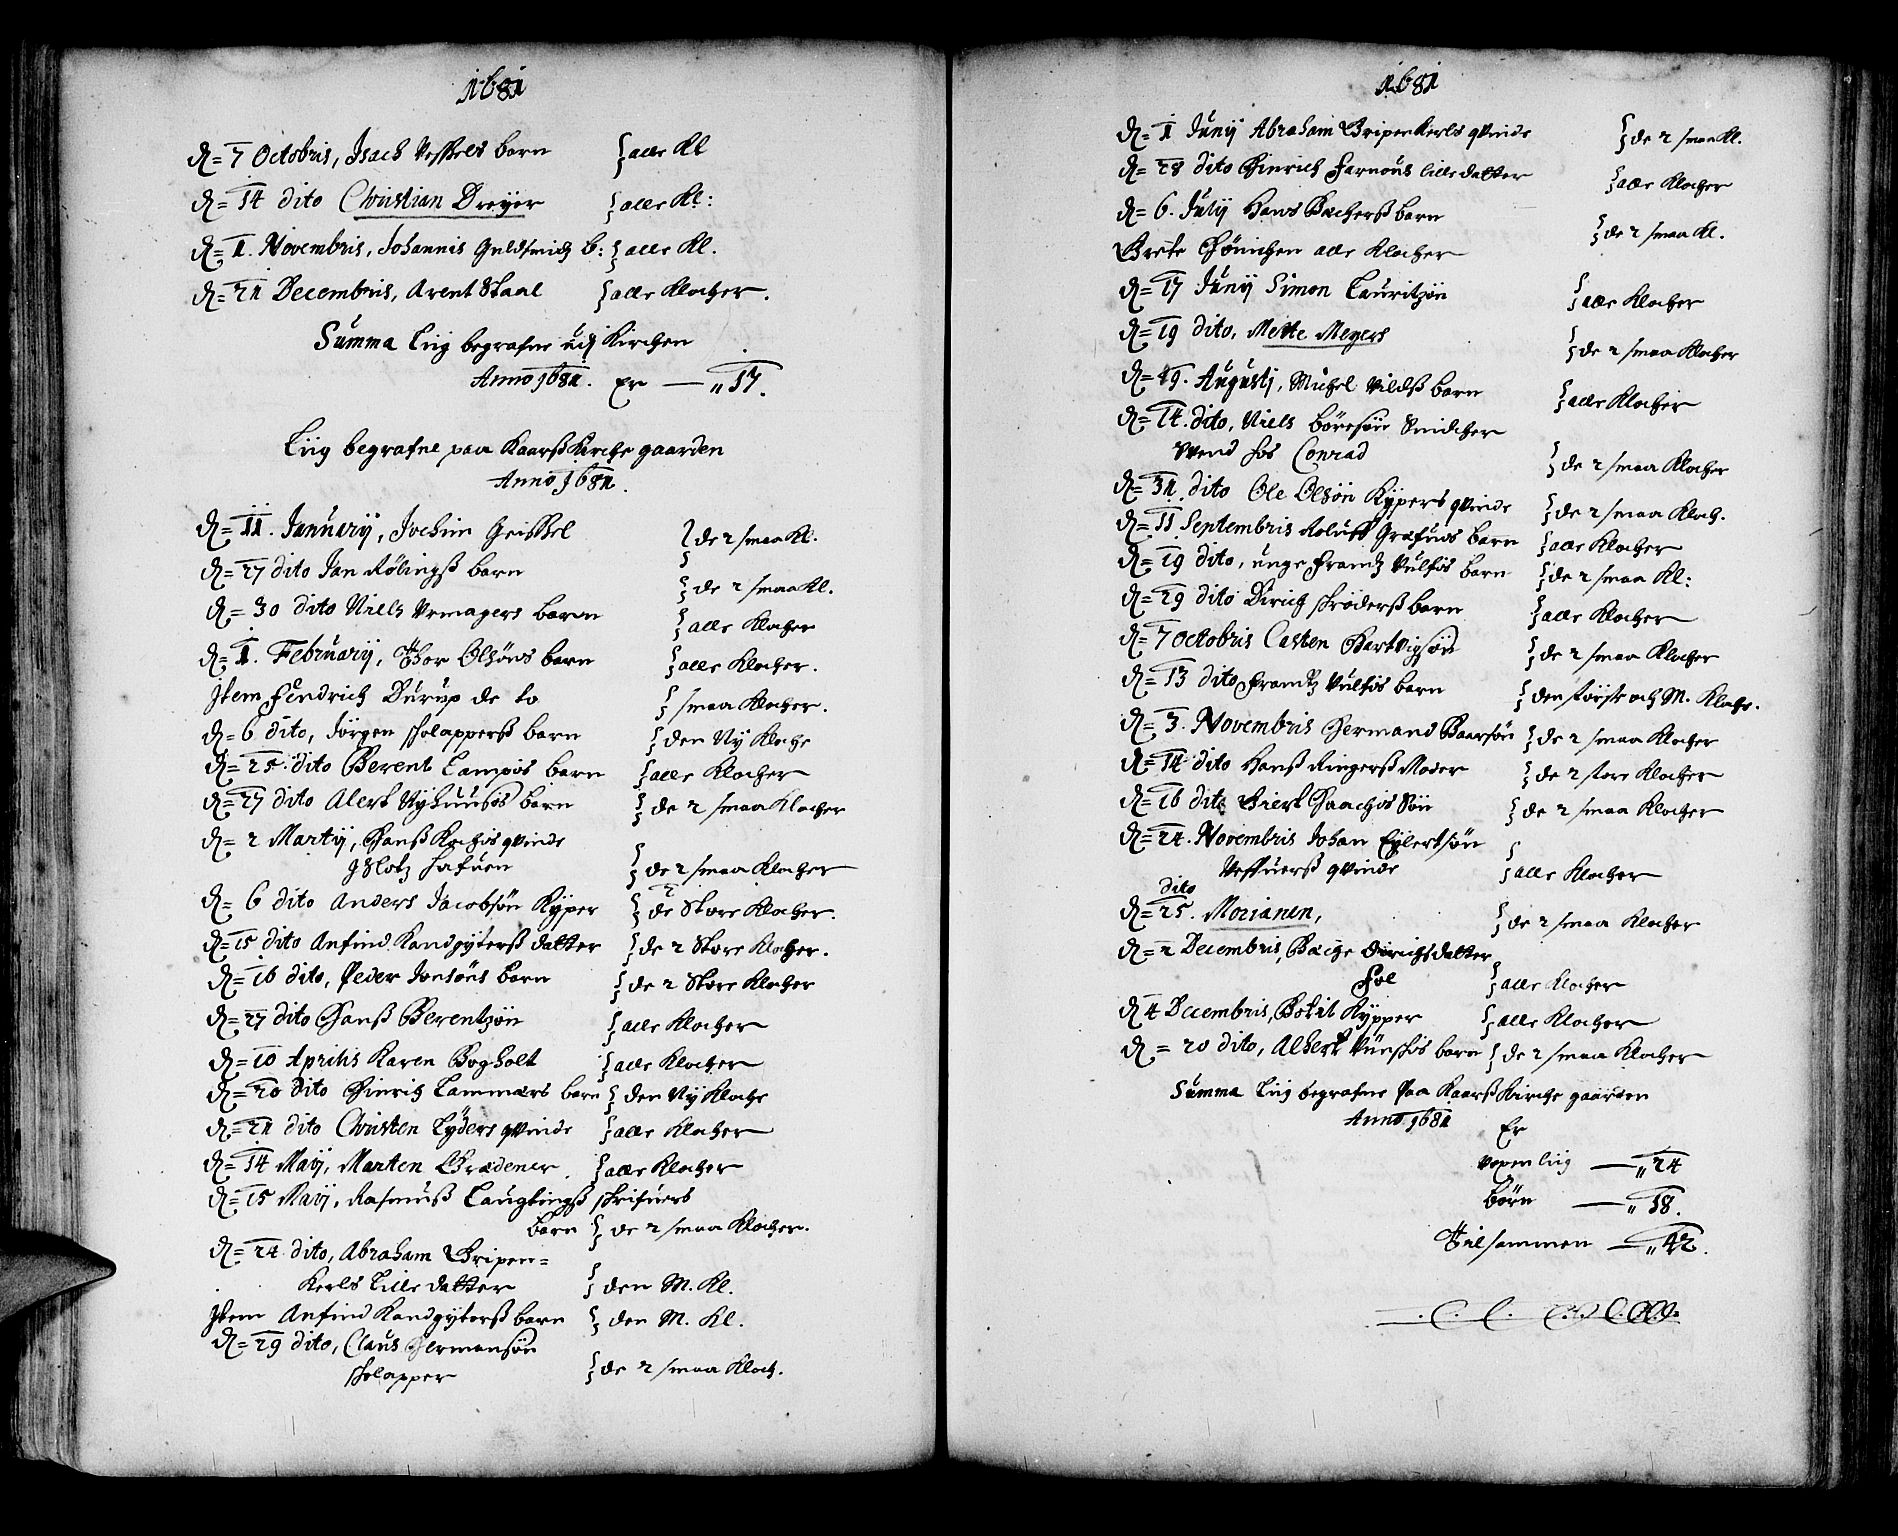 1681
D= 7 Octobris, Isach Vessels barn } alle Kl
D= 14 dito Christian Dreyer } alle Kl:
D= 1. Novembris, Johannis Guldsmidz b: } alle Kl.
D= 21 Decembris, Arent Staal } alle Klocher.
Summa Liig begrafne udj Kirchen
Anno 1681. Er — „ 17.
Liig begrafne paa Kaarß Kirche gaarden
Anno 1681.
D= 11. Januarij, Jochim Geissel } de 2 smaa Kl.
D= 27 dito Jan Rölingß barn } de 2 smaa Kl.
D= 30 dito Niels Vemagers barn } alle Klocher
D= 1. Februarij, Thor Olsöns barn } alle Klocher.
Item Fendrich Durup de to } smaa Klocher.
D= 6 dito, Jörgen Skolapperß barn } den Ny Kloche
D= 25. dito Berent Lampis barn } alle Klocher
D= 27 dito Alert Nyhuusis barn } de 2 smaa Klocher
D= 2 Martij, Hanß Kochis qvinde
J Slotz hafuen } de 2 smaa Klocher
D= 6 dito Anders Jacobsön Kyper } de 2 Store Klocher.
D= 15 dito Anfind Kandgyterß datter } de 2 Store Klocher.
D= 16 dito, Peder Jonsöns barn } de 2 Store Klocher
D= 27 dito Hanß Berentzön } alle Klocher
D= 10 Aprilis Karen Bogholt } alle Klocher
D= 20 dito Hinrich Lammers barn } den Ny Kloche
D= 21 dito Christen Lyders qvinde } alle Klocher
D= 14 Maij, Marten Grædener } alle Klocher
D= 15 Maij, Rasmuß Lauglingß skrifuers
barn } de 2 smaa Klocher.
D= 24 dito, Abraham Gripen=
Kerls Lille datter } den M. Kl.
Item Anfind Kandgyterß barn } den M. Kl.
D= 29 dito, Claus Hermansön
skolapper } de 2 smaa Kloch.
1681
D= 1 Junij Abraham Gripenkerls qvinde } de 2 smaa Kl.
D= 28 dito Hinrich Farnöus lille datter } alle Klocher
D= 6. Julij Hans Bacherß barn } de 2 smaa Kl.
Grete Hönichen alle Klocher
D= 17 Junij Simon Lauritzön } alle Klocher
D= 19 dito, Mette Meyers } de 2 smaa Klocher
D= 49. Augustj, Michel Vildß barn } alle Klocher
D= 14. dito, Niels börsön Snidcher
svend hos Conrad } de 2 smaa Klocher
D= 31. dito Ole Olsön Kypers qvinde } de 2 smaa Kloch.
D= 11 Septembris Roluff Grafuns barn } alle Klocher
D= 19 dito, unge Frantz Vulfis barn } de 2 smaa Kl:
D= 29 dito Dirich skröderß barn } alle Klocher
D= 7 Octobris Casten Hartvigsön } de 2 smaa Klocher
D= 13 dito Frantz Vulfis barn } den förste och M. Kloche.
D= 3. Novembris Hermand Baarsön } de 2 smaa Klocher
D= 14 dito Hanß Ringerß Moder } de 2 store Klocher
D= 16 dito Giert Haachis Sön } de 2 smaa Klocher
D= 24. Novembris Johan Eylertsön
Veffuerß qvinde } alle Klocher
dito
D= 25. Morianen, } de 2 smaa Klocher
D= 2 Decembris, Birgite Dirichsdatter
Føl } alle Klocher
D 4 Decembris, Botil Kypper } alle Klocher
D = 20 dito, Albert Vünshis barn } de 2 smaa Klocher
Summa Liig begrafne Paa Kaarß Kirche gaarden
Anno 1681 Er
voxen liig — „ 24
börn — „ 18.
Tilsammen — „ 42.